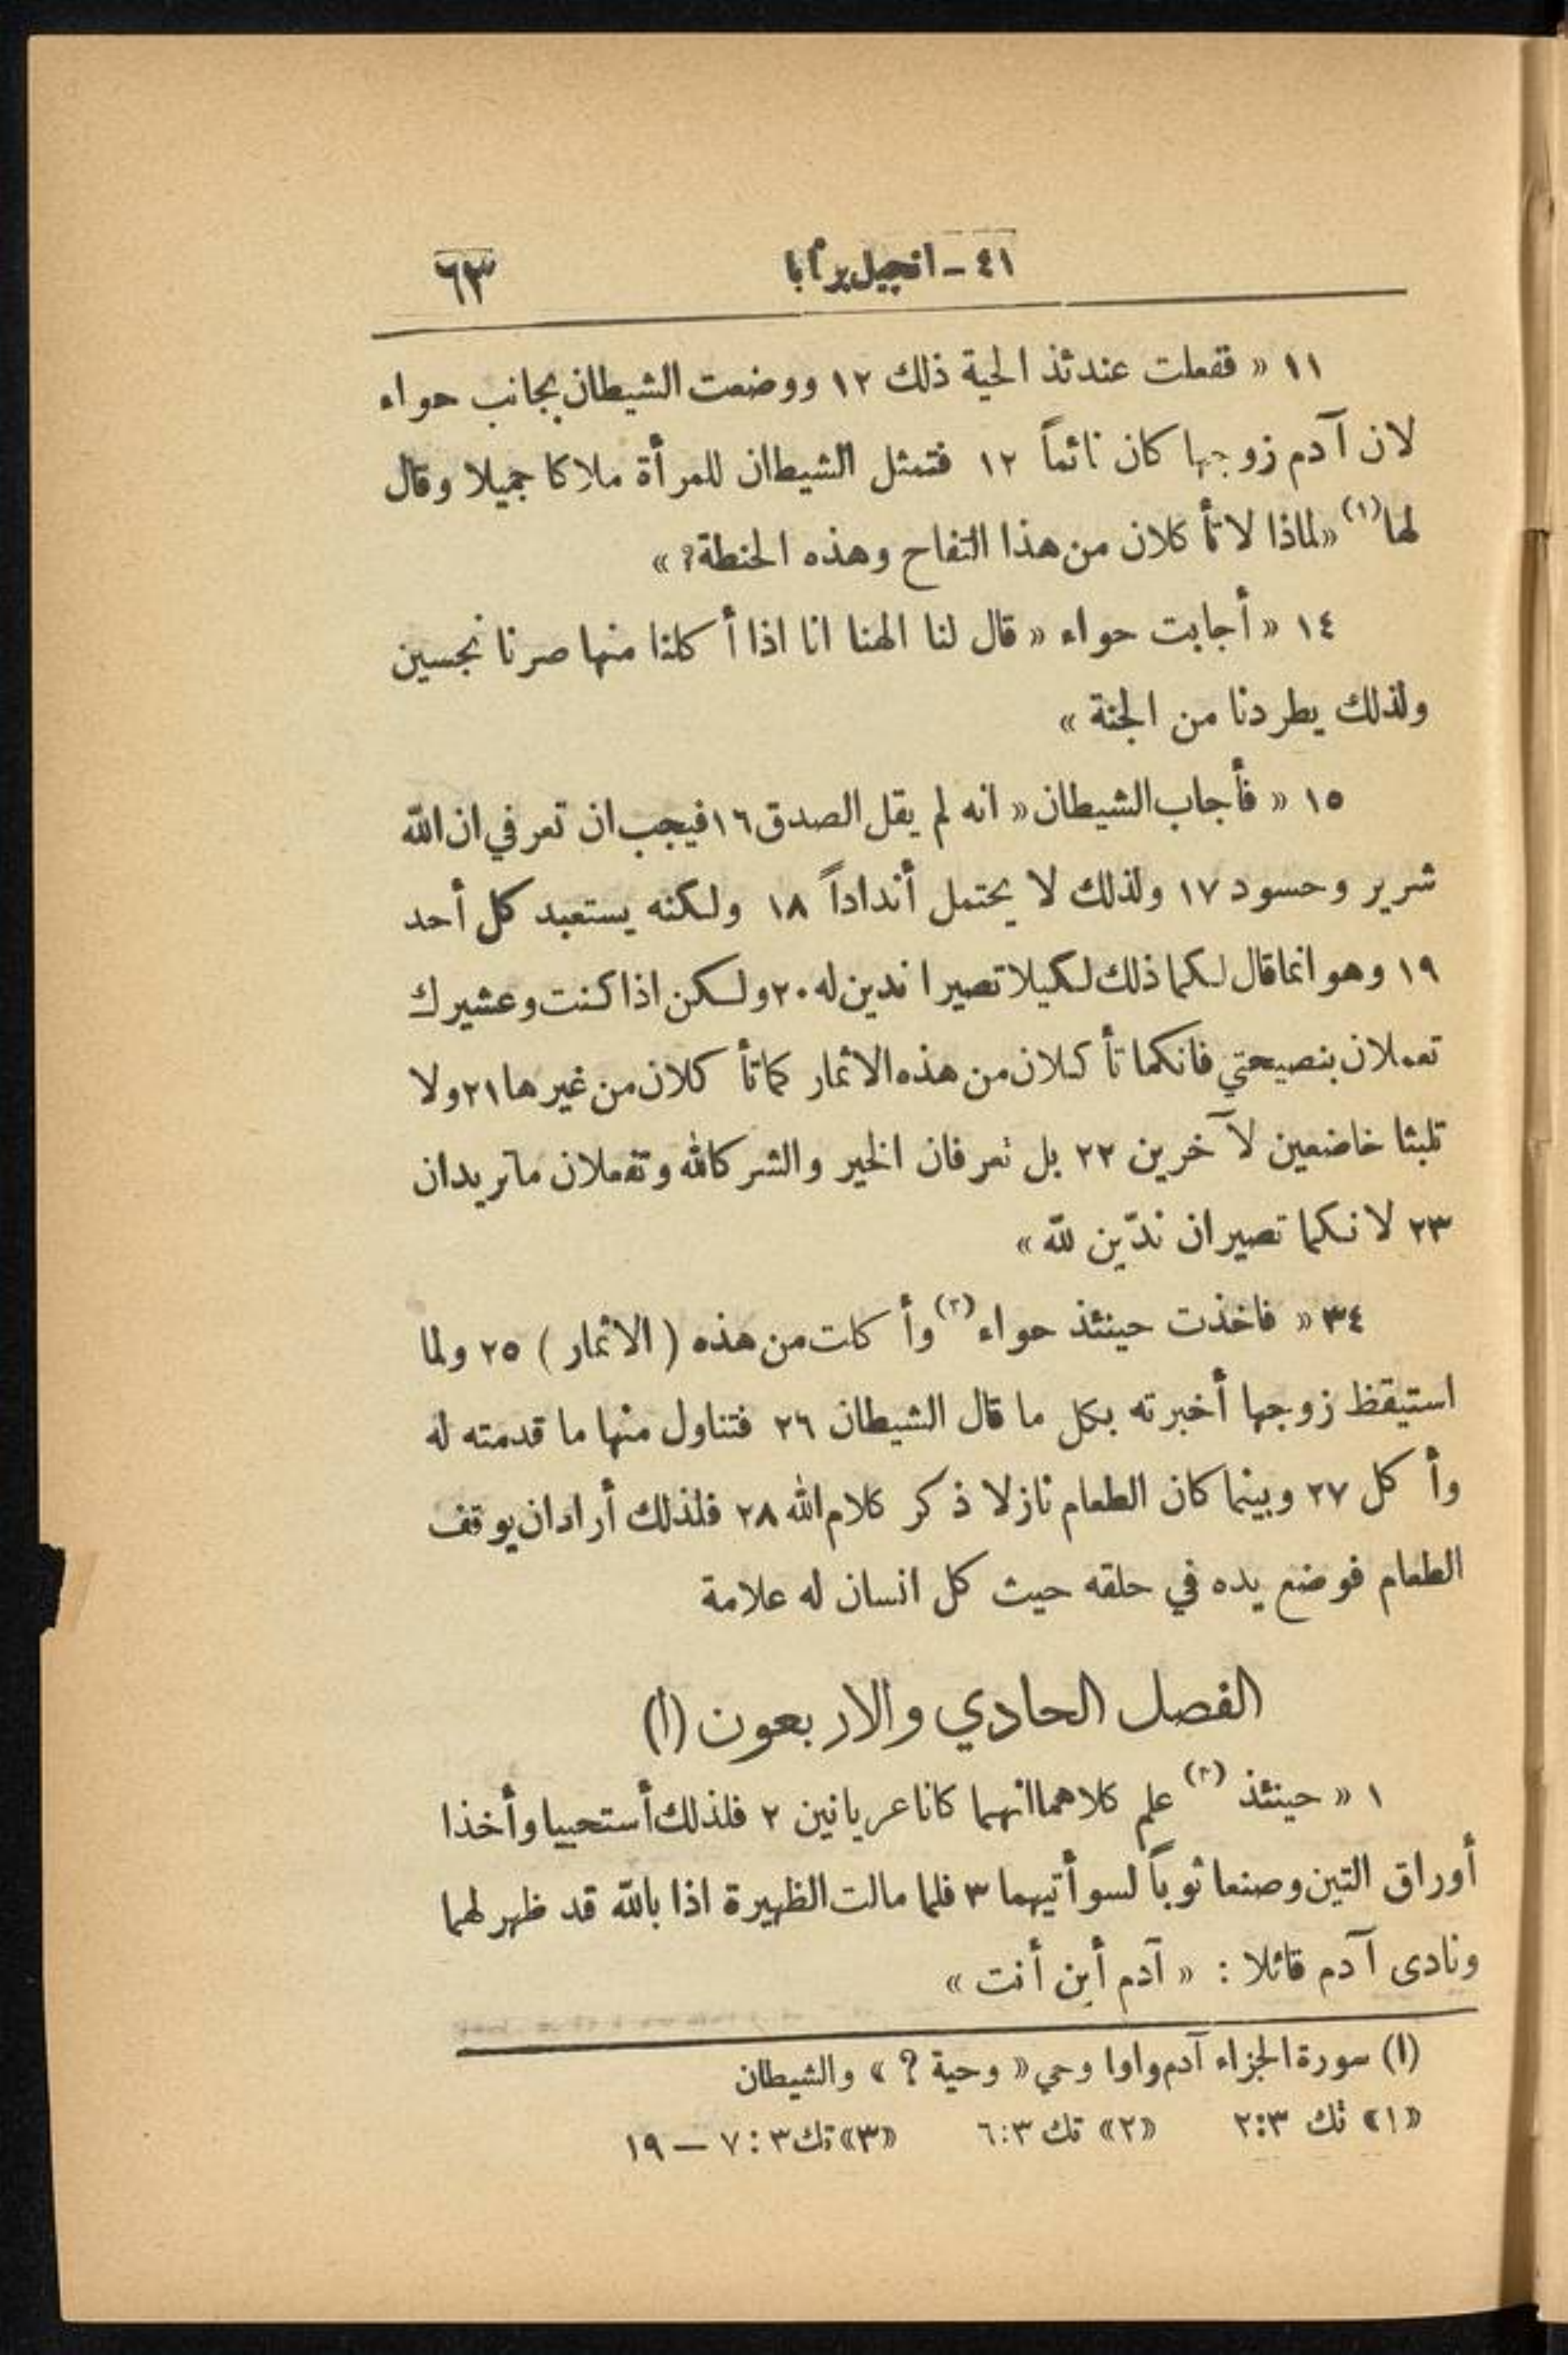 ٤١ - انجيل برنابا ٦٣
١١ « ففعلت عندئذ الحية ذلك ١٢ ووضعت الشيطان بجانب حواء
لان آدم زوجها كان نائماً ١٢ فتمثل الشيطان للمرأة ملاكا جميلا وقال
لها(١) «لماذا لا تأكلان من هذا التفاح وهذه الحنطة؟ »
١٤ « أجابت حواء « قال لنا الهنا انا اذا أكلنا منها صرنا نجسين
ولذلك يطردنا من الجنة »
١٥ « فأجاب الشيطان « انه لم يقل الصدق ١٦ فيجب ان تعرفي ان الله
شرير وحسود ١٧ ولذلك لا يحتمل أنداداً ١٨ ولكنه يستعبد كل أحد
١٩ وهو انما قال لكما ذلك لكيلا تصيرا ندين له ٢٠ ولكن اذا كنت وعشيرك
تعملان بنصيحتي فانكما تأكلان من هذه الاثمار كما تأكلان من غيرها ٢١ ولا
تلبثا خاضعين لآخرين ٢٢ بل تعرفان الخير والشر كالله وتفعلان ما تريدان
٢٣ لانكما تصيران ندّين لله »
٣٤ « فاخذت حينئذ حواء(٢) وأكلت من هذه ( الاثمار ) ٢٥ ولما
استيقظ زوجها أخبرته بكل ما قال الشيطان ٢٦ فتناول منها ما قدمته له
وأكل ٢٧ وبينما كان الطعام نازلا ذكر كلام الله ٢٨ فلذلك أراد ان يوقف
الطعام فوضع يده في حلقه حيث كل انسان له علامة
الفصل الحادي والاربعون (ا)
١ « حينئذ(٣) علم كلاهما انهما كانا عريانين ٢ فلذلك أستحييا وأخذا
أوراق التين وصنعا ثوباً لسوأتيهما ٣ فلما مالت الظهيرة اذا بالله قد ظهر لهما
ونادى آدم قائلا : « آدم أين أنت »
(ا) سورة الجزاء آدم واوا وحي « وحية ؟ » والشيطان
«١» تك ٢:٣ «٢» تك ٦:٣ «٣» تك ٣ : ٧ – ١٩